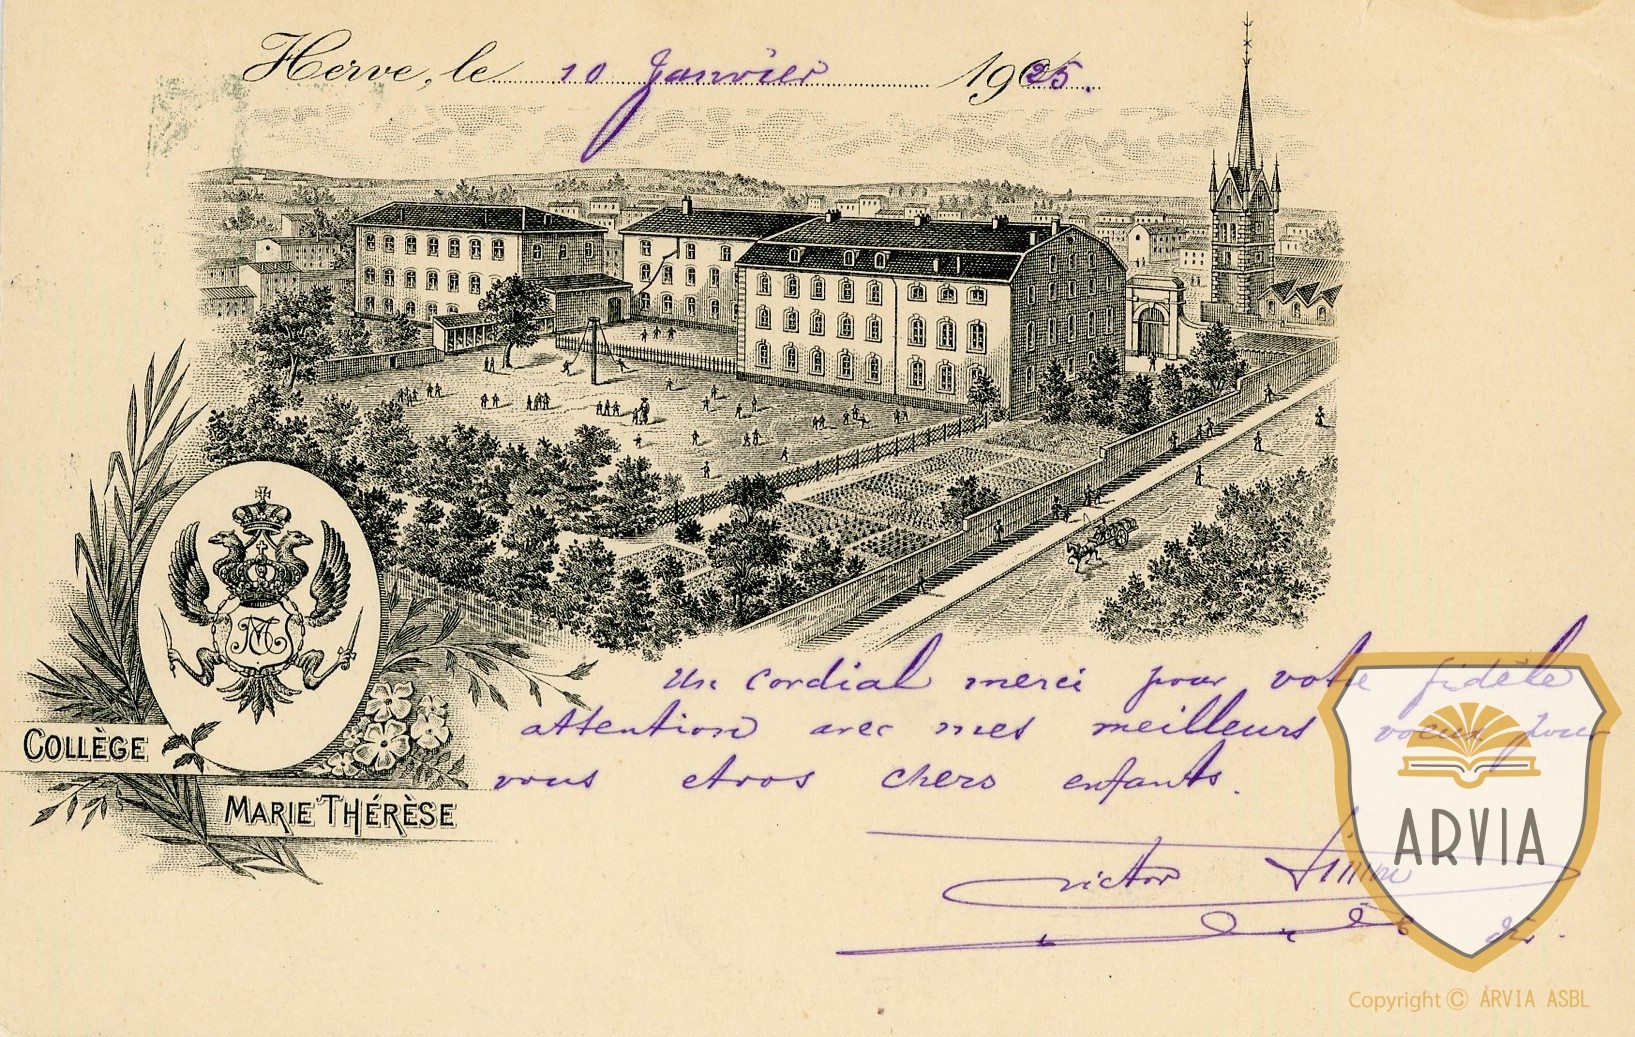 Herve, le 10 Janvier 1925.
Un cordial merci pour votre fidèle
attention avec mes meilleurs voeux pour
vous et vos chers enfants.
Victor
COLLÈGE
MARIE THÉRÈSE
ARVIA
Copyright © ARVIA ASBL